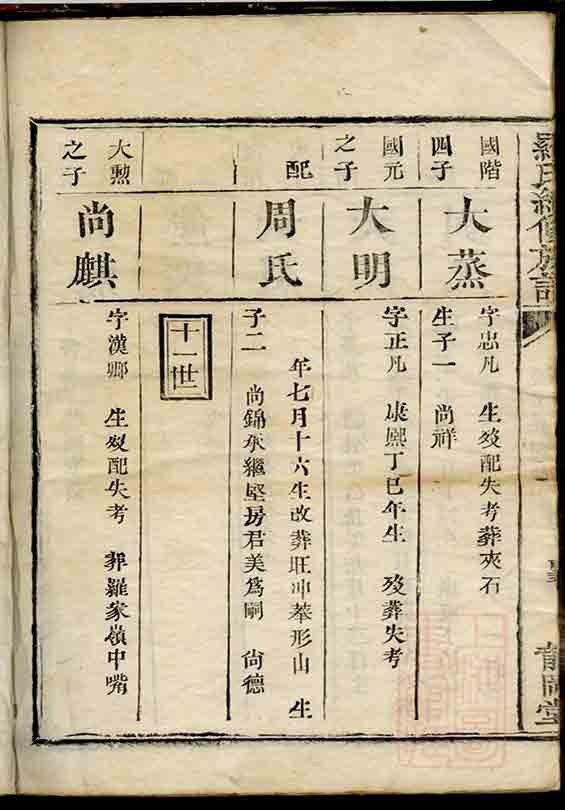 羅氏續修族譜
國階四子
大蒸
字忠凡 生歿配失考葬夾石
生子一 尚祥
國元之子
大明
字正凡 康熙丁巳年生 歿葬失考
配
周氏
年七月十六生改葬旺冲拳形山 生
子二 尚錦承繼堅房君美爲嗣 尙德
十一世
大勲之子
尚麒
字漢鄉 生歿配失考 葬羅家嶺中嘴